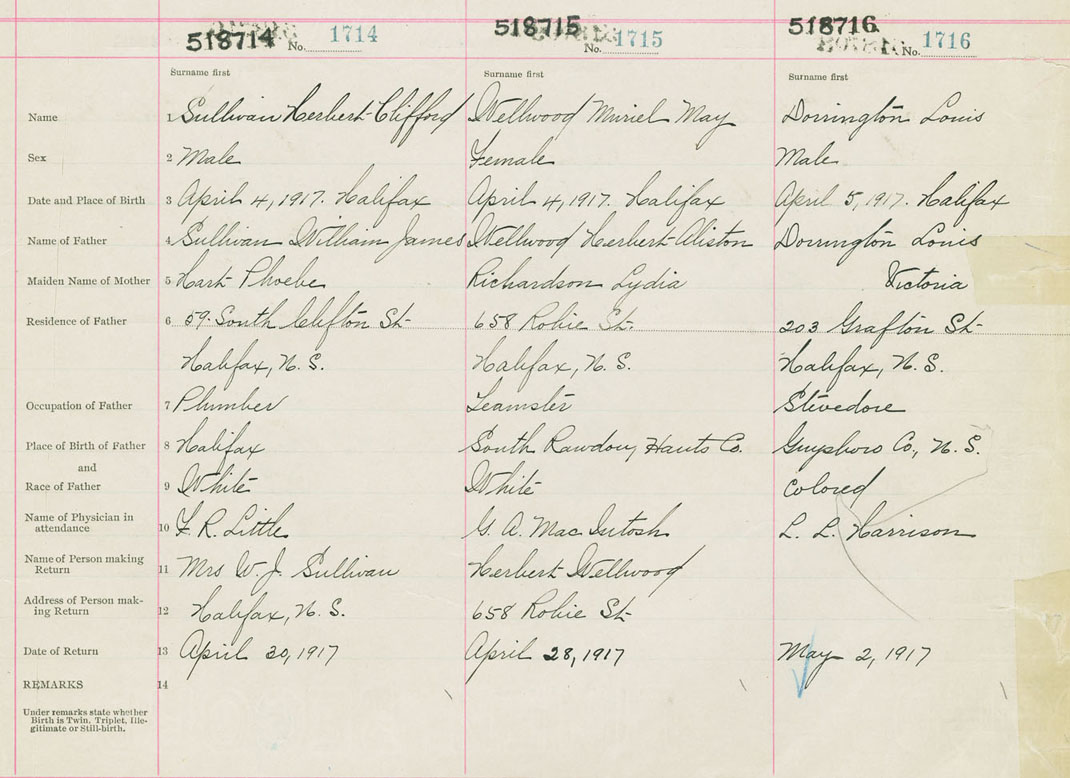 518714 No. 1714 518715 No. 1715 518716 No. 1716
Surname first Surname first Surname first
Name 1 Sullivan Herbert Clifford Wellwood Muriel May Dorrington Louis
Sex 2 Male Female Male
Date and Place of Birth 3 April 4, 1917. Halifax April 4, 1917. Halifax April 5, 1917. Halifax
Name of Father 4 Sullivan William James Wellwood Herbert Aliston Dorrington Louis
Maiden Name of Mother 5 Hart Phoebe Richardson Lydia Victoria
Residence of Father 6 59 South Clifton St 658 Robie St. 203 Grafton St
Halifax, N. S. Halifax, N. S. Halifax, N. S.
Occupation of Father 7 Plumber Teamster Stevedore
Place of Birth of Father 8 Halifax South Rawdon, Hants Co. Guysboro Co., N. S.
and
Race of Father 9 White White Colored
Name of Physician in
attendance 10 F. R. Little G. A. Mac Intosh L. L. Harrison
Name of Person making
Return 11 Mrs W. J. Sullivan Herbert Wellwood
Address of Person mak-
ing Return 12 Halifax, N. S. 658 Robie St
Date of Return 13 April 30, 1917 April 28, 1917 May 2, 1917
REMARKS 14
Under remarks state whether
Birth is Twin, Triplet, Ille-
gitimate or Still-birth.